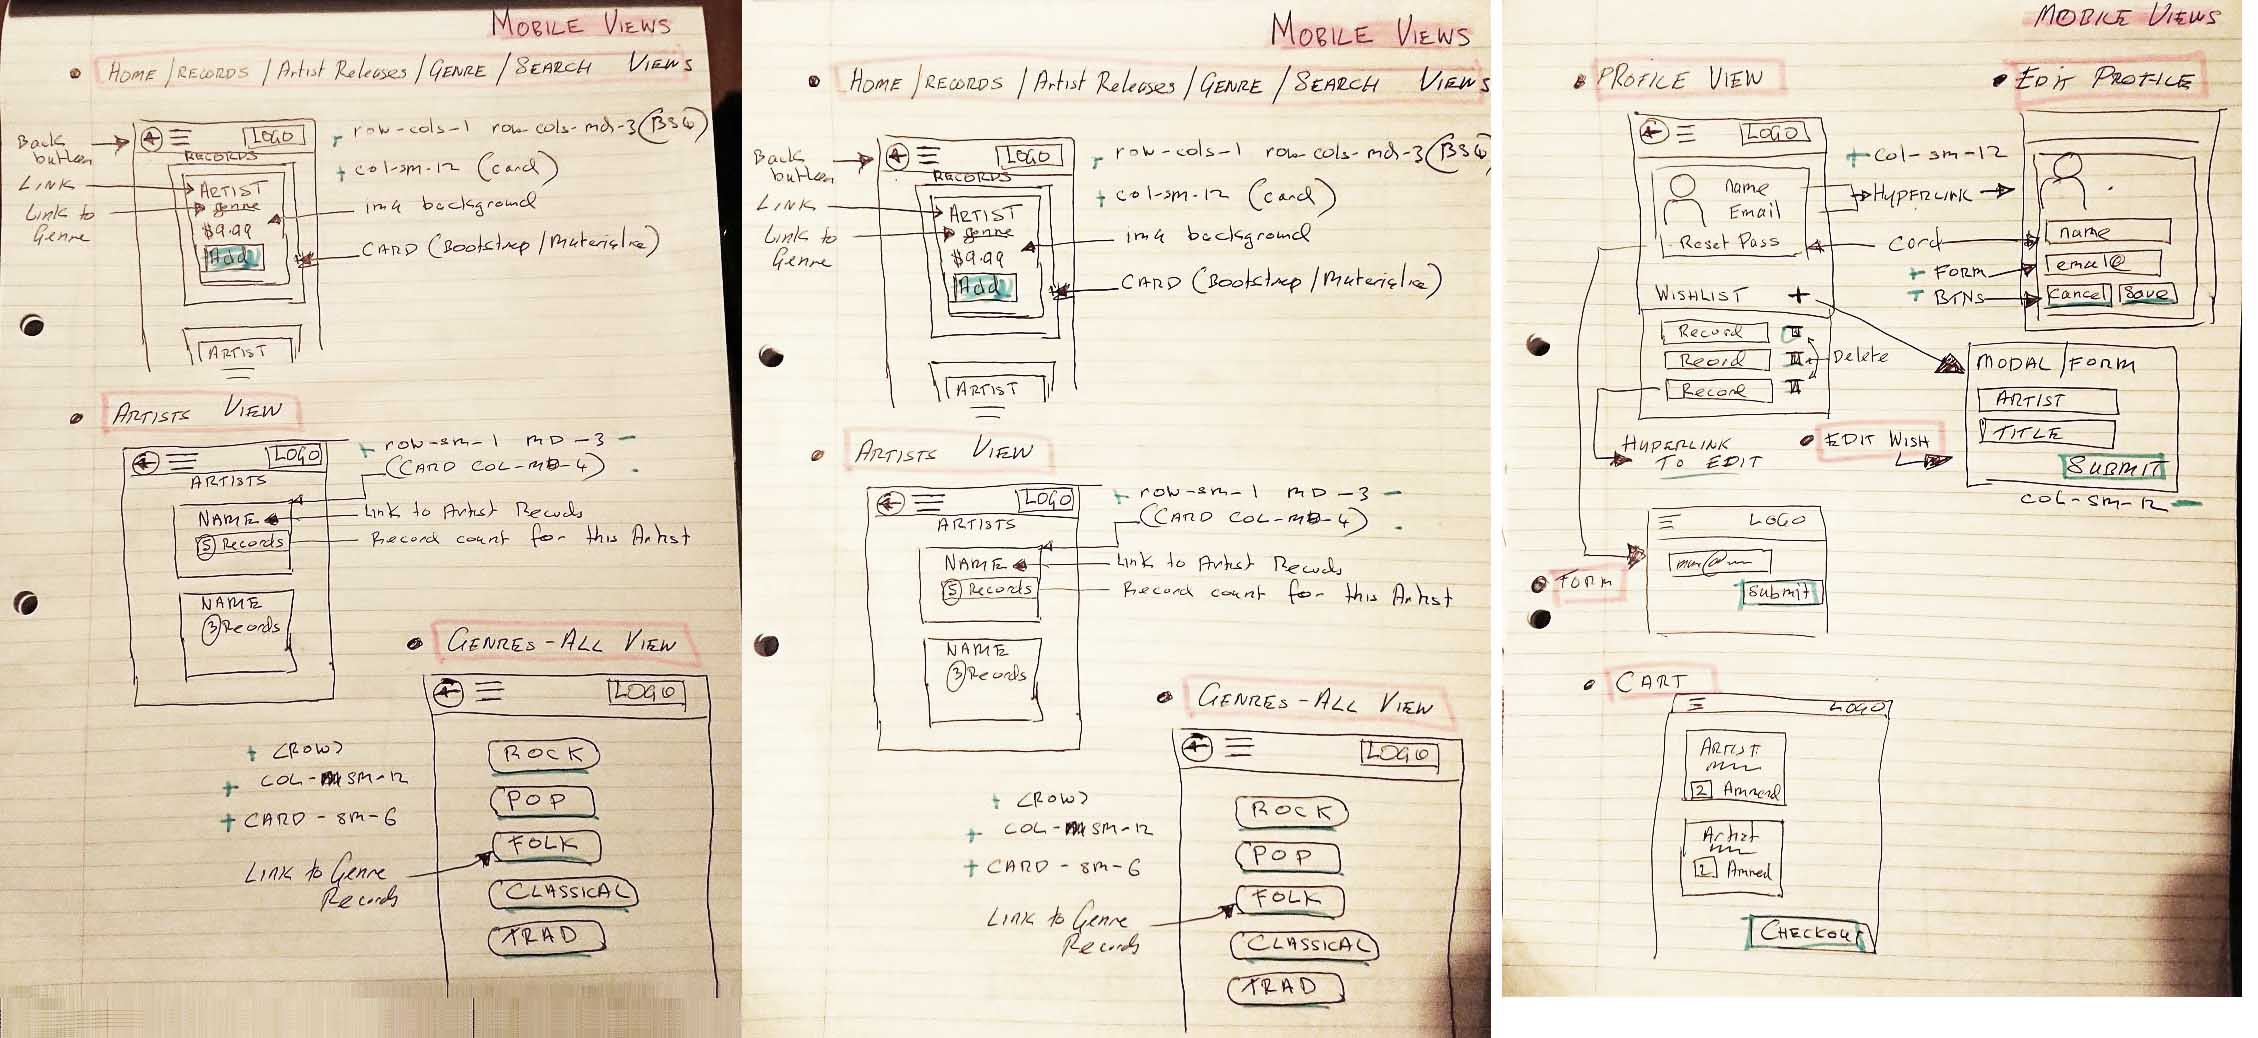 MOBILE VIEWS
HOME / RECORDS / Artist Releases / GENRE / SEARCH VIEWS
Back button
LINK
Link to Genre
LOGO
RECORDS
ARTIST
genre
$9.99
Add
ARTIST
row-cols-1 row-cols-md-3 (BS4)
+ col-sm-12 (card)
img background
CARD (Bootstrap / Materialize)
ARTISTS VIEW
LOGO
ARTISTS
NAME
5 Records
NAME
3 Records
+ row-sm-1 MD-3 -
(CARD COL-MD-4)
Link to Artist Records
Record count for this Artist
GENRES - ALL VIEW
LOGO
ROCK
POP
FOLK
CLASSICAL
TRAD
+ <ROW>
+ COL-SM-12
+ CARD - SM-6
LINK to Genre
Records
MOBILE VIEWS
HOME / RECORDS / Artist Releases / GENRE / SEARCH VIEWS
Back button
LINK
Link to Genre
LOGO
RECORDS
ARTIST
genre
$9.99
Add
ARTIST
row-cols-1 row-cols-md-3 (BS4)
+ col-sm-12 (card)
img background
CARD (Bootstrap / Materialize)
ARTISTS VIEW
LOGO
ARTISTS
NAME
5 Records
NAME
3 Records
+ row-sm-1 MD-3 -
(CARD COL-MD-4)
Link to Artist Records
Record count for this Artist
GENRES - ALL VIEW
LOGO
ROCK
POP
FOLK
CLASSICAL
TRAD
+ <ROW>
+ COL-SM-12
+ CARD - SM-6
LINK to Genre
Records
MOBILE VIEWS
PROFILE VIEW
LOGO
name
Email
Reset Pass
WISHLIST +
Record
Record
Record
Delete
EDIT PROFILE
+ Col-sm-12
HYPERLINK
card
+ FORM
+ BTNS
name
email@
Cancel Save
MODAL / FORM
ARTIST
TITLE
SUBMIT
COL-SM-12 -
HYPERLINK
TO EDIT
EDIT WISH
FORM
LOGO
Submit
CART
LOGO
ARTIST
2
Artist
2
CHECKOUT